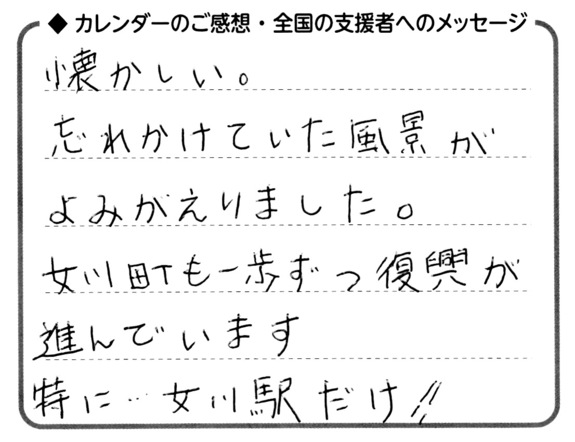 ◆ カレンダーのご感想・全国の支援者へのメッセージ
懐かしい。
忘れかけていた風景が
よみがえりました。
女川町も一歩ずつ復興が
進んでいます
特に…女川駅だけ!!